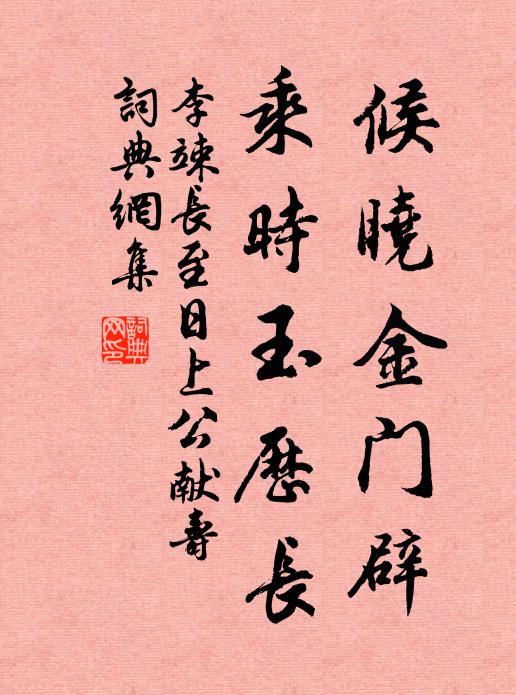 候曉金门辟
乘時玉歷長
李竦長至日上公献壽
詞典網集
詞典网印